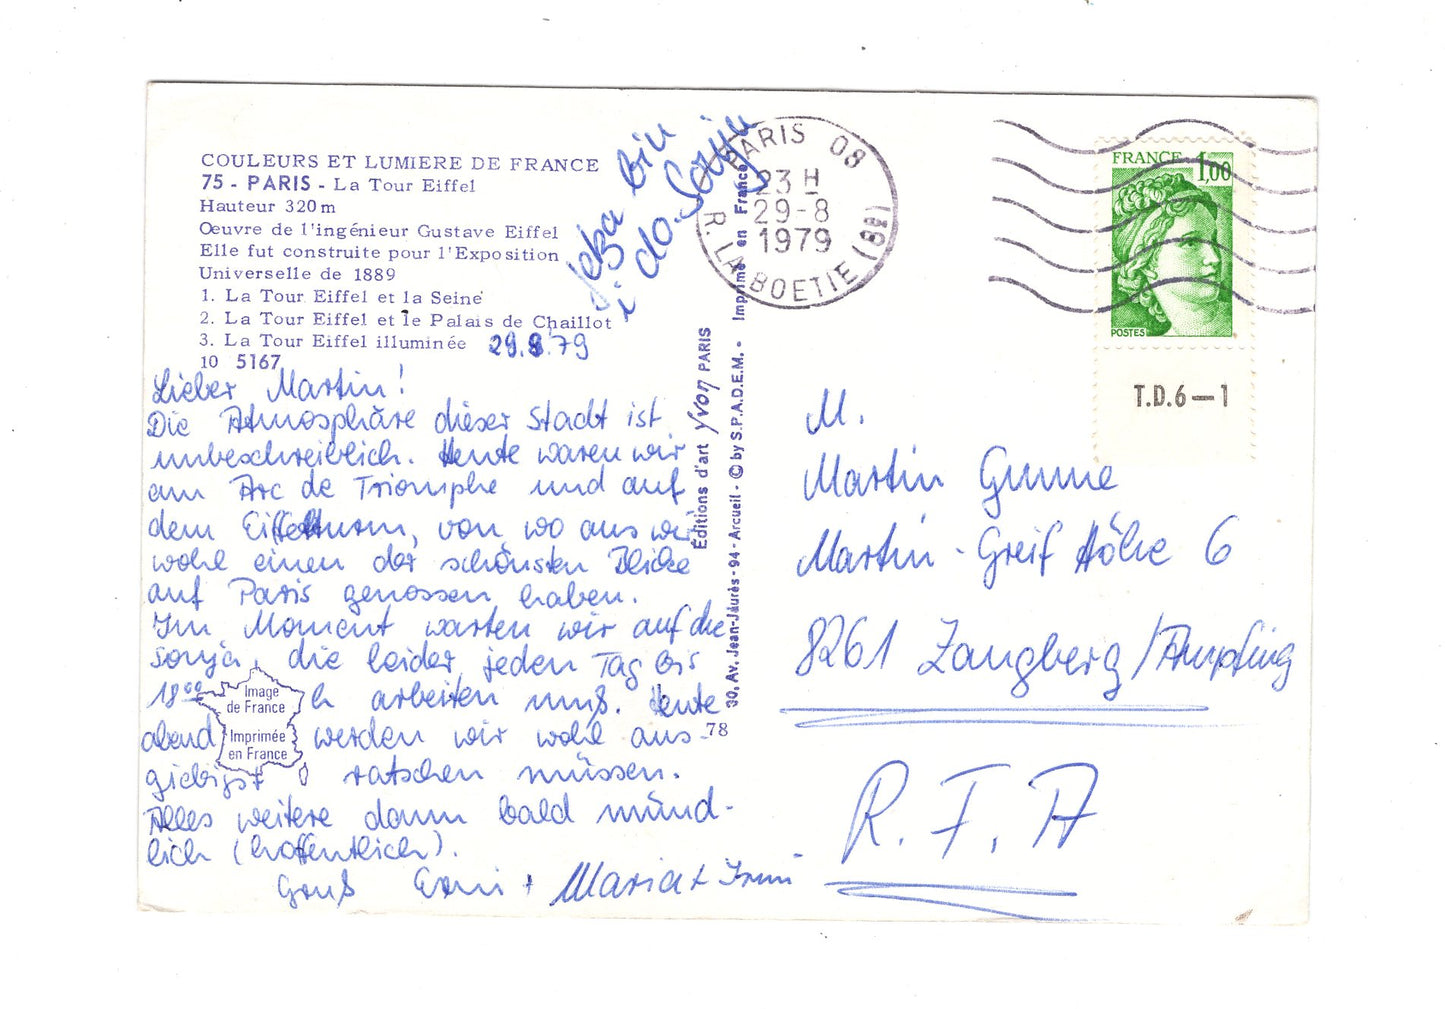 COULEURS ET LUMIERE DE FRANCE
75 - PARIS - La Tour Eiffel
Hauteur 320 m
Œuvre de l'ingénieur Gustave Eiffel
Elle fut construite pour l'Exposition
Universelle de 1889
1. La Tour Eiffel et la Seine
2. La Tour Eiffel et le Palais de Chaillot
3. La Tour Eiffel illuminée
10 5167
29.8.79
Lieber Martin!
Die Atmosphäre dieser Stadt ist
unbeschreiblich. Heute waren wir
am Arc de Triomphe und auf
dem Eiffelturm, von wo aus wir
wohl einen der schönsten Blicke
auf Paris genossen haben.
Im Moment warten wir auf die
Sonja, die leider jeden Tag bis
18⁰⁰ h arbeiten muß. Heute
abend werden wir wohl aus-
giebigst ratschen müssen.
Alles weitere dann bald münd-
lich (hoffentlich).
Gruß Erni + Maria + Irmi
jetza bin
i do. Sonja
Image
de France
Imprimée
en France
78
Éditions d'art Yvon PARIS
30, Av. Jean-Jaurès - 94 - Arcueil - © by S.P.A.D.E.M. - Imprimé en France
PARIS 08
23 H
29-8
1979
R. LA BOETIE (8E)
FRANCE 1,00
POSTES
T.D.6—1
M.
Martin Gumme
Martin-Greif Höhe 6
8261 Zangberg/Ampfing
R. F. A